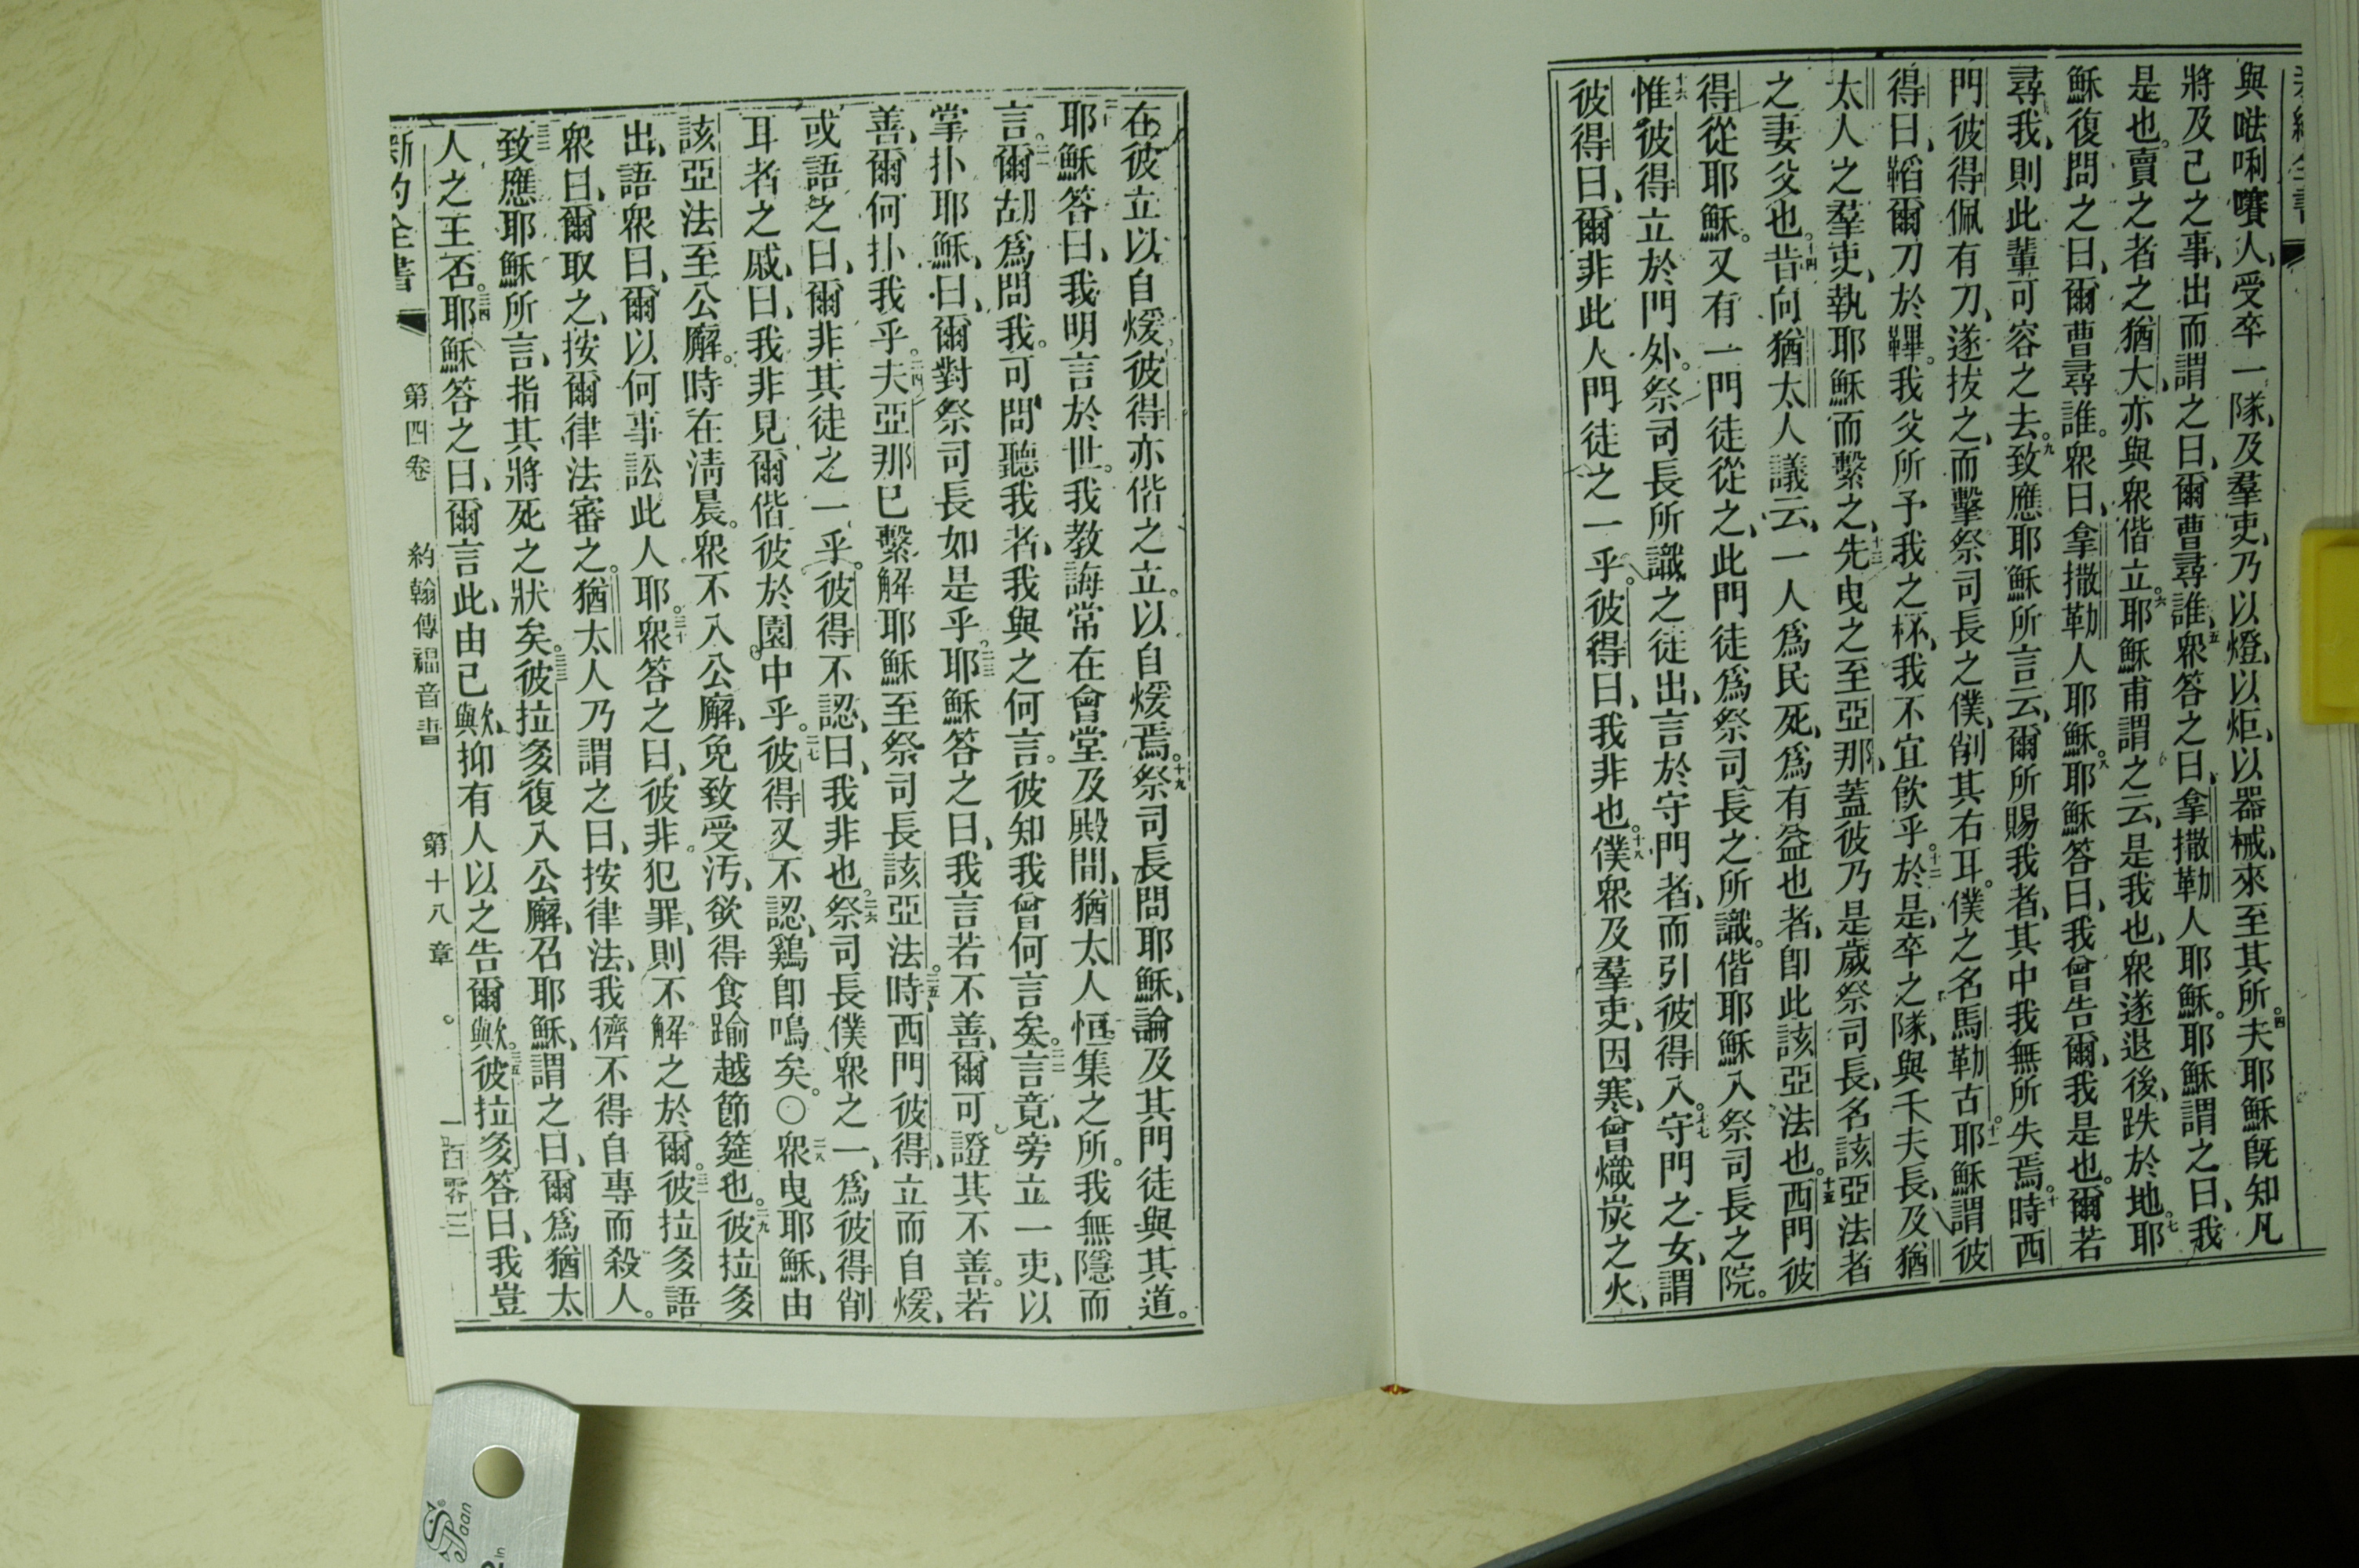 與𠵽唎嚽人、受卒一隊、及羣吏、乃以燈、以炬、以器械、來至其所。四夫耶穌旣知凡
將及己之事、出而謂之曰、爾曹尋誰、五眾答之曰、拿撒勒人耶穌。耶穌謂之曰、我
是也。賣之者之猶大、亦與眾偕立。六耶穌甫謂之云、是我也、眾遂退後、跌於地。七耶
穌復問之曰、爾曹尋誰。眾曰、拿撒勒人耶穌。八耶穌答曰、我曾告爾、我是也。爾若
尋我、則此輩可容之去。九致應耶穌所言云、爾所賜我者、其中我無所失焉。十時西
門彼得佩有刀、遂拔之、而擊祭司長之僕、削其右耳。僕之名馬勒古。十一耶穌謂彼
得曰、韜爾刀於鞸。我父所予我之杯、我不宜飲乎。十二於是、卒之隊、與千夫長、及猶
太人之羣吏、執耶穌而繫之、十三先曳之至亞那、蓋彼乃是歲祭司長、名該亞法者
之妻父也。十四昔向猶太人議云、一人爲民死、爲有益也者、卽此該亞法也。十五西門彼
得從耶穌。又有一門徒從之、此門徒爲祭司長之所識。偕耶穌入祭司長之院。
十六惟彼得立於門外。祭司長所識之徒出、言於守門者、而引彼得入。十七守門之女、謂
彼得曰、爾非此人門徒之一乎。彼得曰、我非也。十八僕眾及羣吏、因寒、曾熾炭之火、
在彼立以自煖。彼得亦偕之立。以自煖焉。十九祭司長問耶穌、論及其門徒與其道。
二十耶穌答曰、我明言於世。我教誨常在會堂及殿間、猶太人恒集之所。我無隱而
言。二一爾胡爲問我。可問聽我者、我與之何言。彼知我曾何言矣。二二言竟、旁立一吏、以
掌扑耶穌、曰、爾對祭司長如是乎。二三耶穌答之曰、我言若不善、爾可證其不善。若
善、爾何扑我乎。二四夫亞那已繫解耶穌至祭司長該亞法。二五時、西門彼得、立而自煖、
或語之曰、爾非其徒之一乎。彼得不認、曰、我非也。二六祭司長僕眾之一、爲彼得削
耳者之戚、曰、我非見爾偕彼於園中乎。二七彼得又不認、鷄卽鳴矣。〇二八眾曳耶穌、由
該亞法至公廨。時在淸晨。眾不入公廨、免致受汚、欲得食踰越節筵也。二九彼拉多
出、語眾曰、爾以何事訟此人耶。三十眾答之曰、彼非犯罪、則不解之於爾。三一彼拉多語
眾曰、爾取之、按爾律法審之。猶太人乃謂之曰、按律法、我儕不得自專而殺人。
三二致應耶穌所言、指其將死之狀矣。三三彼拉多復入公廨、召耶穌、謂之曰、爾爲猶太
人之王否。三四耶穌答之曰、爾言此、由己歟、抑有人以之告爾歟。三五彼拉多答曰、我豈
新約全書 第四卷 約翰傳福音書 第十八章 一百零三